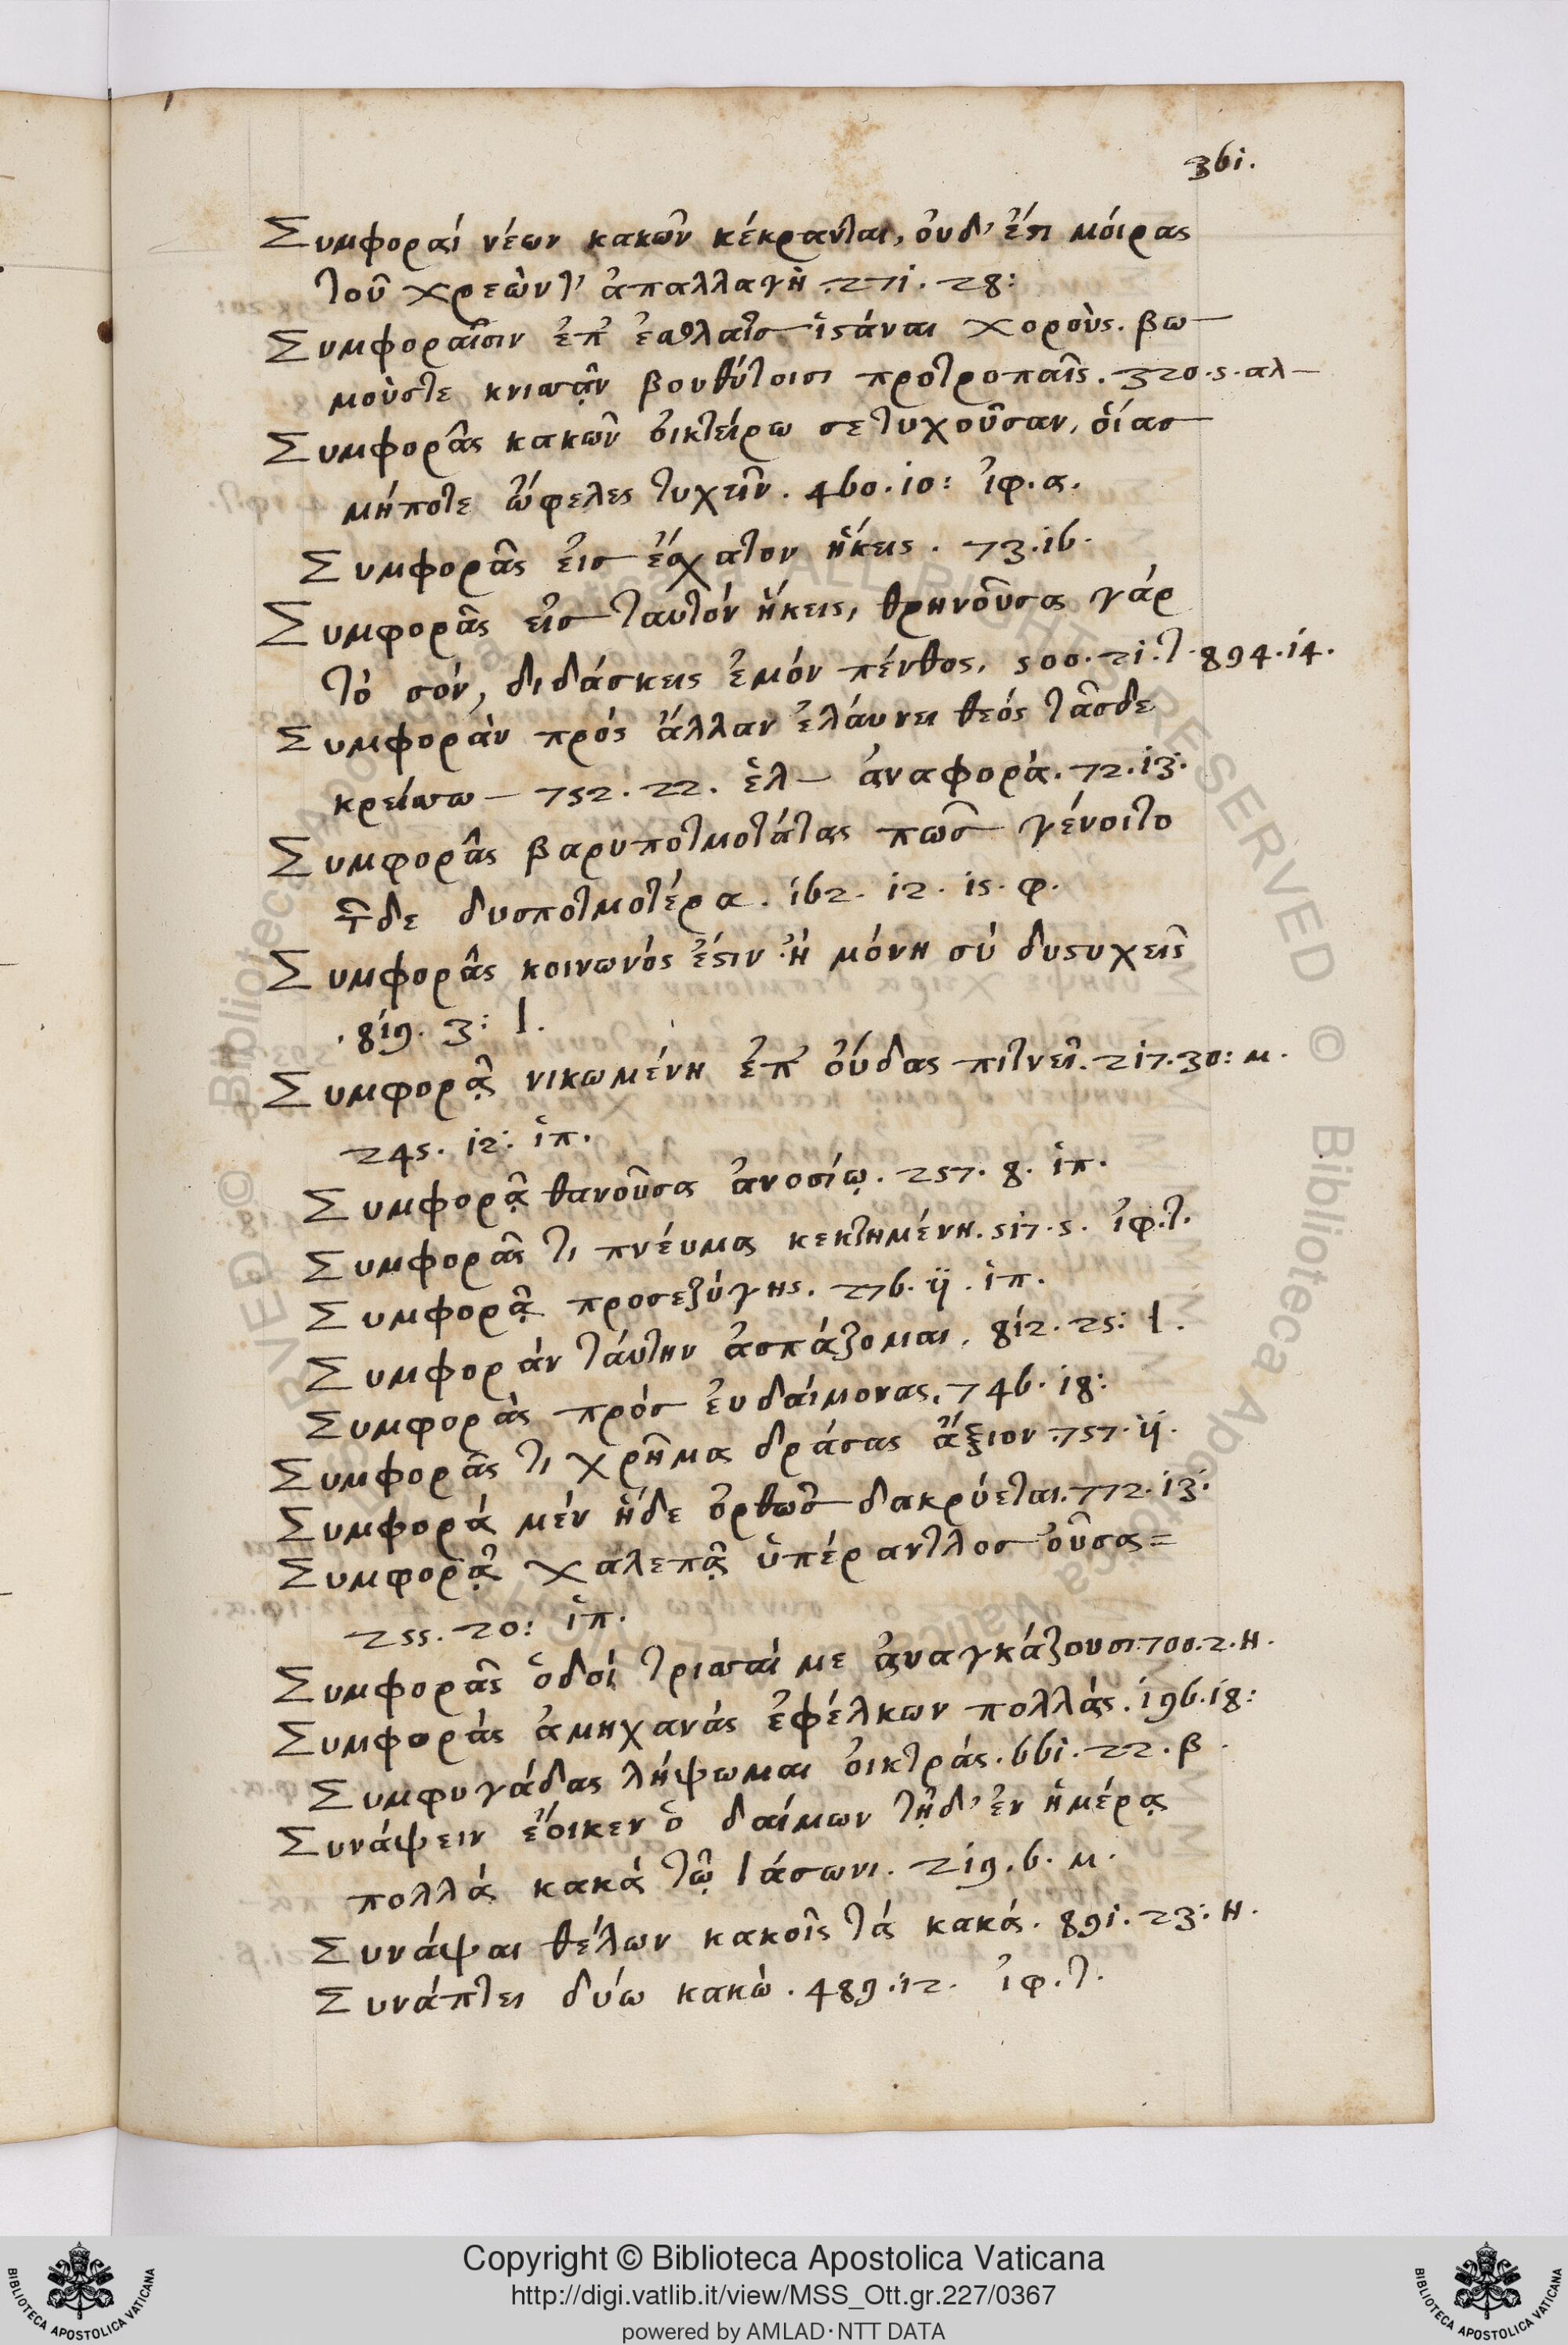 361.
Συμφοραί νέων κακῶν κέκρανται, ὀυδ' ἔτι μόιρας
τοῦ χρεὼντ' ἀπαλλαγὴ .271. 28:
Συμφοραῖσιν ἐπ' ἐσθλαῖσ ἱστάναι χορούς. βω-
μούστε κνισσᾷν βουθύτοισι προτροπαῖς. 320.5.αλ-
Συμφορᾶς κακῶν ὀικτείρω σε τυχοῦσαν, ὁίασ
μήποτε ὤφελες τυχεῖν. 460.10: ἰφ.α.
Συμφορᾶς ἐισ ἔσχατον ἥκεις. 73.16.
Συμφορᾶς εἰσ ταυτόν ἥκεις, θρηνοῦσα γάρ
τό σόν, διδάσκεις ἐμόν πένθος. 500.21.τ. 894.14.
Συμφοράν πρός ἄλλαν ἐλάυνει θεός τᾶσδε
κρείσσω — 752.22. ἑλ— ἀναφορά. 72.13.
Συμφορᾶς βαρυποτμοτάτας πῶσ γένοιτο
τῆδε δυσποτμοτέρα. 162. 12. 15. φ.
Συμφορᾶς κοινωνός ἐστιν ἤ μόνη σύ δυστυχεῖς
.819. 3: Ι.
Συμφορᾷ νικωμένη ἐπ' ὀύδας πιτνεῖ. 217.30: μ.
245. 12: ἱπ.
Συμφορᾷ θανοῦσα ἀνοσίῳ. 257. 8. ἱπ.
Συμφορᾶς τι πνέυμα κεκτημένη. 517.5. ἰφ.τ.
Συμφορᾷ προσεζύγης. 276. 11. ἱπ.
Συμφοράν τάυτην ἀσπάζομαι. 812. 25: Ι.
Συμφοράς πρόσ ἐυδάιμονας. 746. 18:
Συμφορᾶς τι χρῆμα δράσας ἄξιον. 757. 11.
Συμφορά μέν ἥδε ὀρθῶσ δακρύεται. 772. 13:
Συμφορᾷ χαλεπᾷ ὑπέραντλοσ ὀυσα=
255. 20: ἱπ.
Συμφορᾶς ὁδοί τρισσαί με ἀναγκάζουσι. 700.2.Η.
Συμφοράς ἀμηχανάς ἐφέλκων πολλάς. 196.18:
Συμφυγάδας λήψωμαι ὀικτράς. 661. 22. β.
Συνάψειν ἔοικεν ὁ δαίμων τῇδ' ἐν ἡμέρᾳ
πολλά κακά τῷ Ιάσωνι. 219. 6. μ.
Συνάψαι θέλων κακοῖς τά κακά. 891. 23: Η.
Συνάπτει δύω κακώ. 489.12. ἰφ.τ.
Copyright © Biblioteca Apostolica Vaticana
http://digi.vatlib.it/view/MSS_Ott.gr.227/0367
powered by AMLAD·NTT DATA